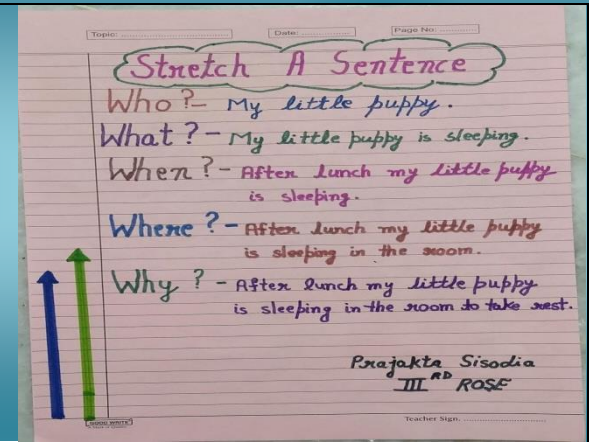 Topic: Date: Page No:
Stretch A Sentence
Who ? – My little puppy.
What ? – My little puppy is sleeping.
When ? – After lunch my little puppy
is sleeping.
Where ? – After lunch my little puppy
is sleeping in the room.
Why ? – After lunch my little puppy
is sleeping in the room to take rest.
Prajakta Sisodia
III RD ROSE
GOOD WRITE
Teacher Sign.